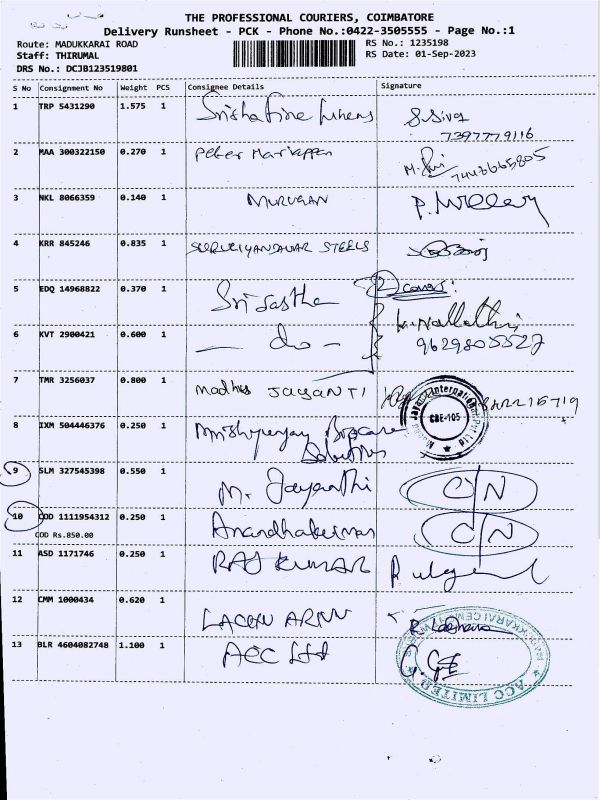 THE PROFESSIONAL COURIERS, COIMBATORE
Delivery Runsheet - PCK - Phone No.:0422-3505555 - Page No.:1
Route: MADUKKARAI ROAD
RS No.: 1235198
Staff: THIRUMAL
RS Date: 01-Sep-2023
DRS No.: DCJB123519801
S No Consignment No Weight PCS Consignee Details Signature
1 TRP 5431290 1.575 1 S.Siva
7397779116
2 MAA 300322150 0.270 1 Peter Mariappan M.
7448665805
3 NKL 8066359 0.140 1 MURUGAN
4 KRR 845246 0.835 1 STEELS
5 EDQ 14968822 0.370 1 Sri Sastha 2 covers:
6 KVT 2900421 0.600 1 — do — K. Nallathi
9629805527
7 TMR 3256037 0.800 1 Madhu JAYANTI
CBE-105
8 IXM 504446376 0.250 1 Biocare
Solutions
9 SLM 327545398 0.550 1 M. Jayanthi C/N
10 COD 1111954312 0.250 1 Anandhakumar C/N
COD Rs.850.00
11 ASD 1171746 0.250 1 RAJ KUMAR
12 CMM 1000434 0.620 1
13 BLR 4604082748 1.100 1 ACC Ltd
ACC LIMITED